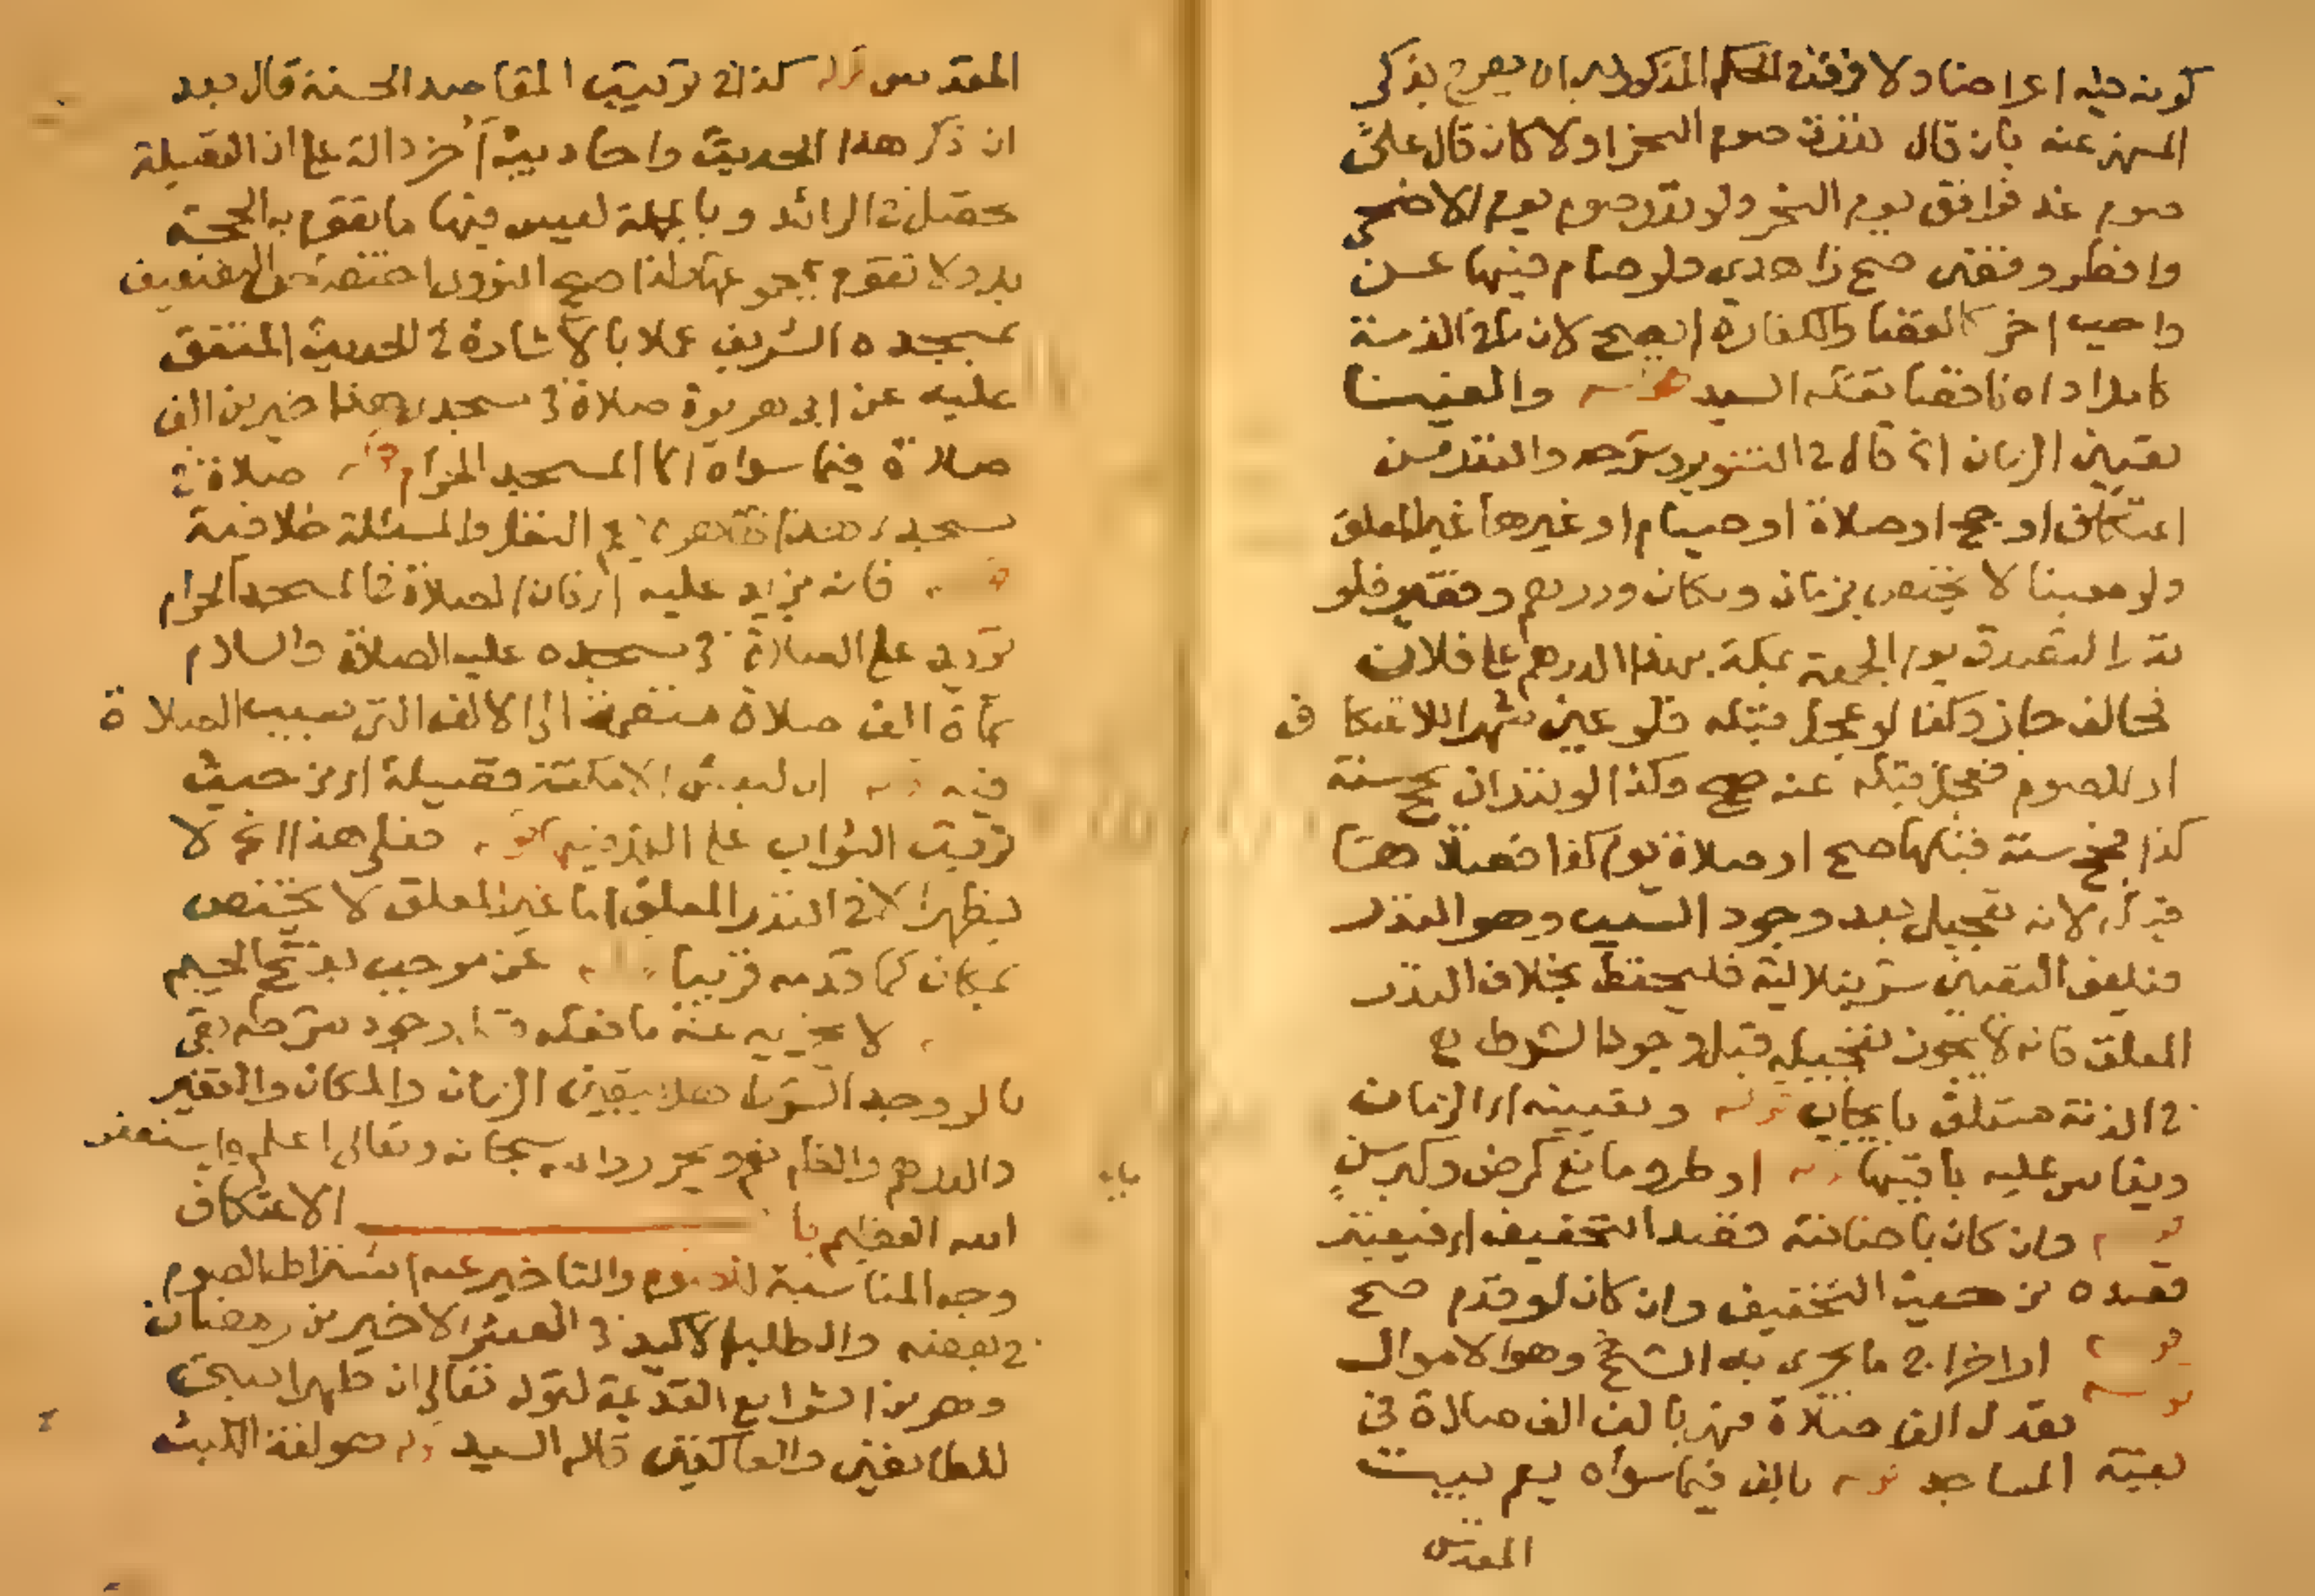 كونه فيه اعراضا ولا فرق في الحكم المذكور بين ان يصرح بذكر
المنهي عنه بان قال نذرت صوم النحر اولا كان قال علي
صوم غد فوافق يوم النحر ولو نذر صوم يوم الاضحى
وافطر وقضى صح زاهدي ولو صام فيها عن
واجب اخر كالقضا والكفارة لم يصح لان ما في الذمة
كاملا اداه ناقصا نقله السيد والغينا
تعيين الزمان الخ قال في التنوير وشرحه والنذر من
اعتكاف او حج او صلاة او صيام او غيرها غير المعلق
ولو معينا لا يختص بزمان ومكان ودرهم وفقير فلو
نذر التصدق يوم الجمعة بمكة بهذا الدرهم على فلان
فخالف جاز وكذا لو عجل قبله فلو عين شهرا للاعتكاف
او للصوم فعجل قبله عنه صح وكذا لو نذر ان يحج سنة
كذا فحج سنة قبلها صح او صلاة يوم كذا فصلاها
قبله لانه تعجيل بعد وجود السبب وهو النذر
فيلغو التعيين شرنبلالية فليحفظ بخلاف النذر
المعلق فانه لا يجوز تعجيله قبل وجود الشرط
في الذمة متعلق بايجاب قوله وتعيينه اي الزمان
ويقاس عليه باقيها قوله او طرو مانع كمرض وكبر سن
قوله وان كان باضافته قصد التخفيف اي فيعتبر
قصده من حيث التخفيف وان كان لو قدم صح
قوله اداخرا في ما يجري به الشح وهو الاموال
قوله تعدل الف صلاة فهي بالف الف صلاة في
بقية المساجد قوله بالف فيما سواه يعم بيت
المقدس
المقدس قوله كذا في ترتيب المقاصد الحسنة قال بعد
ان ذكر هذا الحديث واحاديث أخر دالة على ان الفضيلة
حصلت في الزائد وبالجملة ليس فيها ما تقوم به الحجة
بل ولا تقوم بمجموعها ولذا صحح النووي اختصاص التضعيف
بمسجده الشريف عملا بالاشارة في الحديث المتفق
عليه عن ابي هريرة صلاة في مسجدي هذا خير من الف
صلاة فيما سواه الا المسجد الحرام قوله صلاة في
مسجدي هذا ظاهره يعم النفل والمسئلة خلافية
قوله فانه يزيد عليه اي فان الصلاة في المسجد الحرام
تزيد على الصلاة في مسجده عليه الصلاة والسلام
بمأة الف صلاة منضمة الى الالف التي بسبب الصلاة
فيه قوله ان لبعض الامكنة فضيلة اي من حيث
ترتيب الثواب على النذر فيه قوله فعلى هذا الخ لا
يظهر الا في النذر المعلق اما غير المعلق لا يختص
بمكان كما قدمه قريبا قوله عن موجب بفتح الجيم
لا يجزيه عنه ما فعله قبل وجود شرطه بقي
ما لو وجد الشرط هل يتعين الزمان والمكان والفقير
والدرهم والظاهر نعم ويحرر والله سبحانه وتعالى اعلم واستغفر
الله العظيم باب الاعتكاف
وجه المناسبة للصوم والتاخير عنه اشتراط الصوم
في بعضه والطلب الاكيد في العشر الاخير من رمضان
وهو من الشرايع القديمة لقوله تعالى ان طهرا بيتي
للطايفين والعاكفين قاله السيد قوله هو لغة اللبث
باب